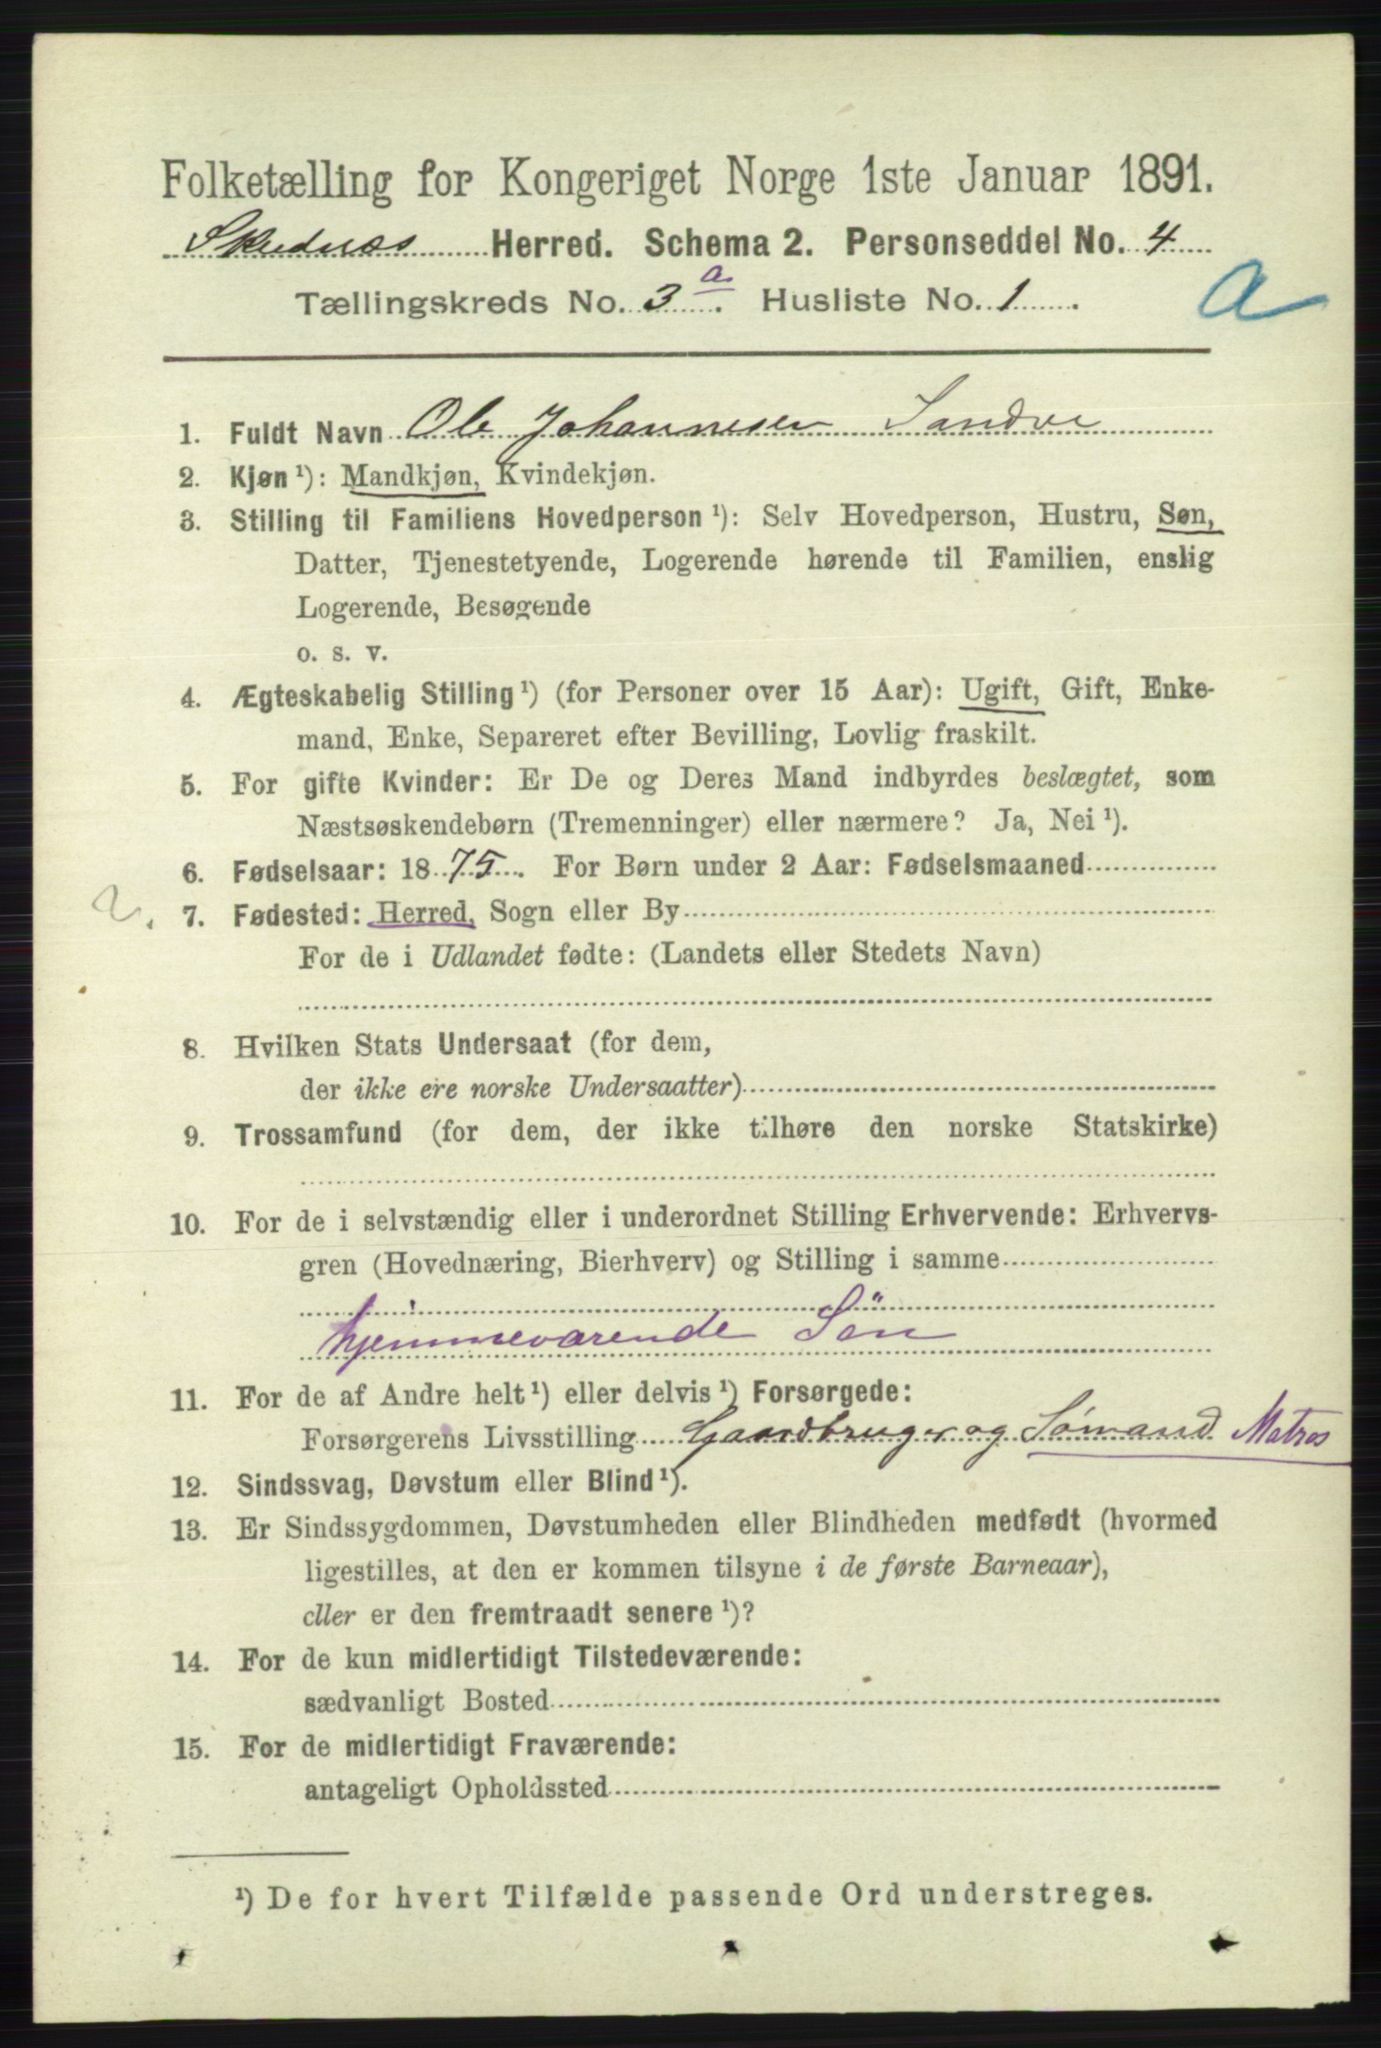 Folketælling for Kongeriget Norge 1ste Januar 1891.
Skudnæs Herred. Schema 2. Personseddel No. 4
Tællingskreds No. 3 a. Husliste No. 1.
a
1. Fuldt Navn Ole Johannesen Sandve
2. Kjøn ¹): Mandkjøn, Kvindekjøn.
3. Stilling til Familiens Hovedperson ¹): Selv Hovedperson, Hustru, Søn,
Datter, Tjenestetyende, Logerende hørende til Familien, enslig
Logerende, Besøgende
o. s. v.
4. Ægteskabelig Stilling ¹) (for Personer over 15 Aar): Ugift, Gift, Enke-
mand, Enke, Separeret efter Bevilling, Lovlig fraskilt.
5. For gifte Kvinder: Er De og Deres Mand indbyrdes beslægtet, som
Næstsøskendebørn (Tremenninger) eller nærmere? Ja, Nei ¹).
6. Fødselsaar: 1875. For Børn under 2 Aar: Fødselsmaaned
7. Fødested: Herred, Sogn eller By
For de i Udlandet fødte: (Landets eller Stedets Navn)
8. Hvilken Stats Undersaat (for dem,
der ikke ere norske Undersaatter)
9. Trossamfund (for dem, der ikke tilhøre den norske Statskirke)
10. For de i selvstændig eller i underordnet Stilling Erhvervende: Erhvervs-
gren (Hovednæring, Bierhverv) og Stilling i samme
hjemmeværende Sön
11. For de af Andre helt ¹) eller delvis ¹) Forsørgede:
Forsørgerens Livsstilling Gaardbruger og Sømand Matros
12. Sindssvag, Døvstum eller Blind ¹).
13. Er Sindssygdommen, Døvstumheden eller Blindheden medfødt (hvormed
ligestilles, at den er kommen tilsyne i de første Barneaar),
eller er den fremtraadt senere ¹)?
14. For de kun midlertidigt Tilstedeværende:
sædvanligt Bosted
15. For de midlertidigt Fraværende:
antageligt Opholdssted
¹) De for hvert Tilfælde passende Ord understreges.